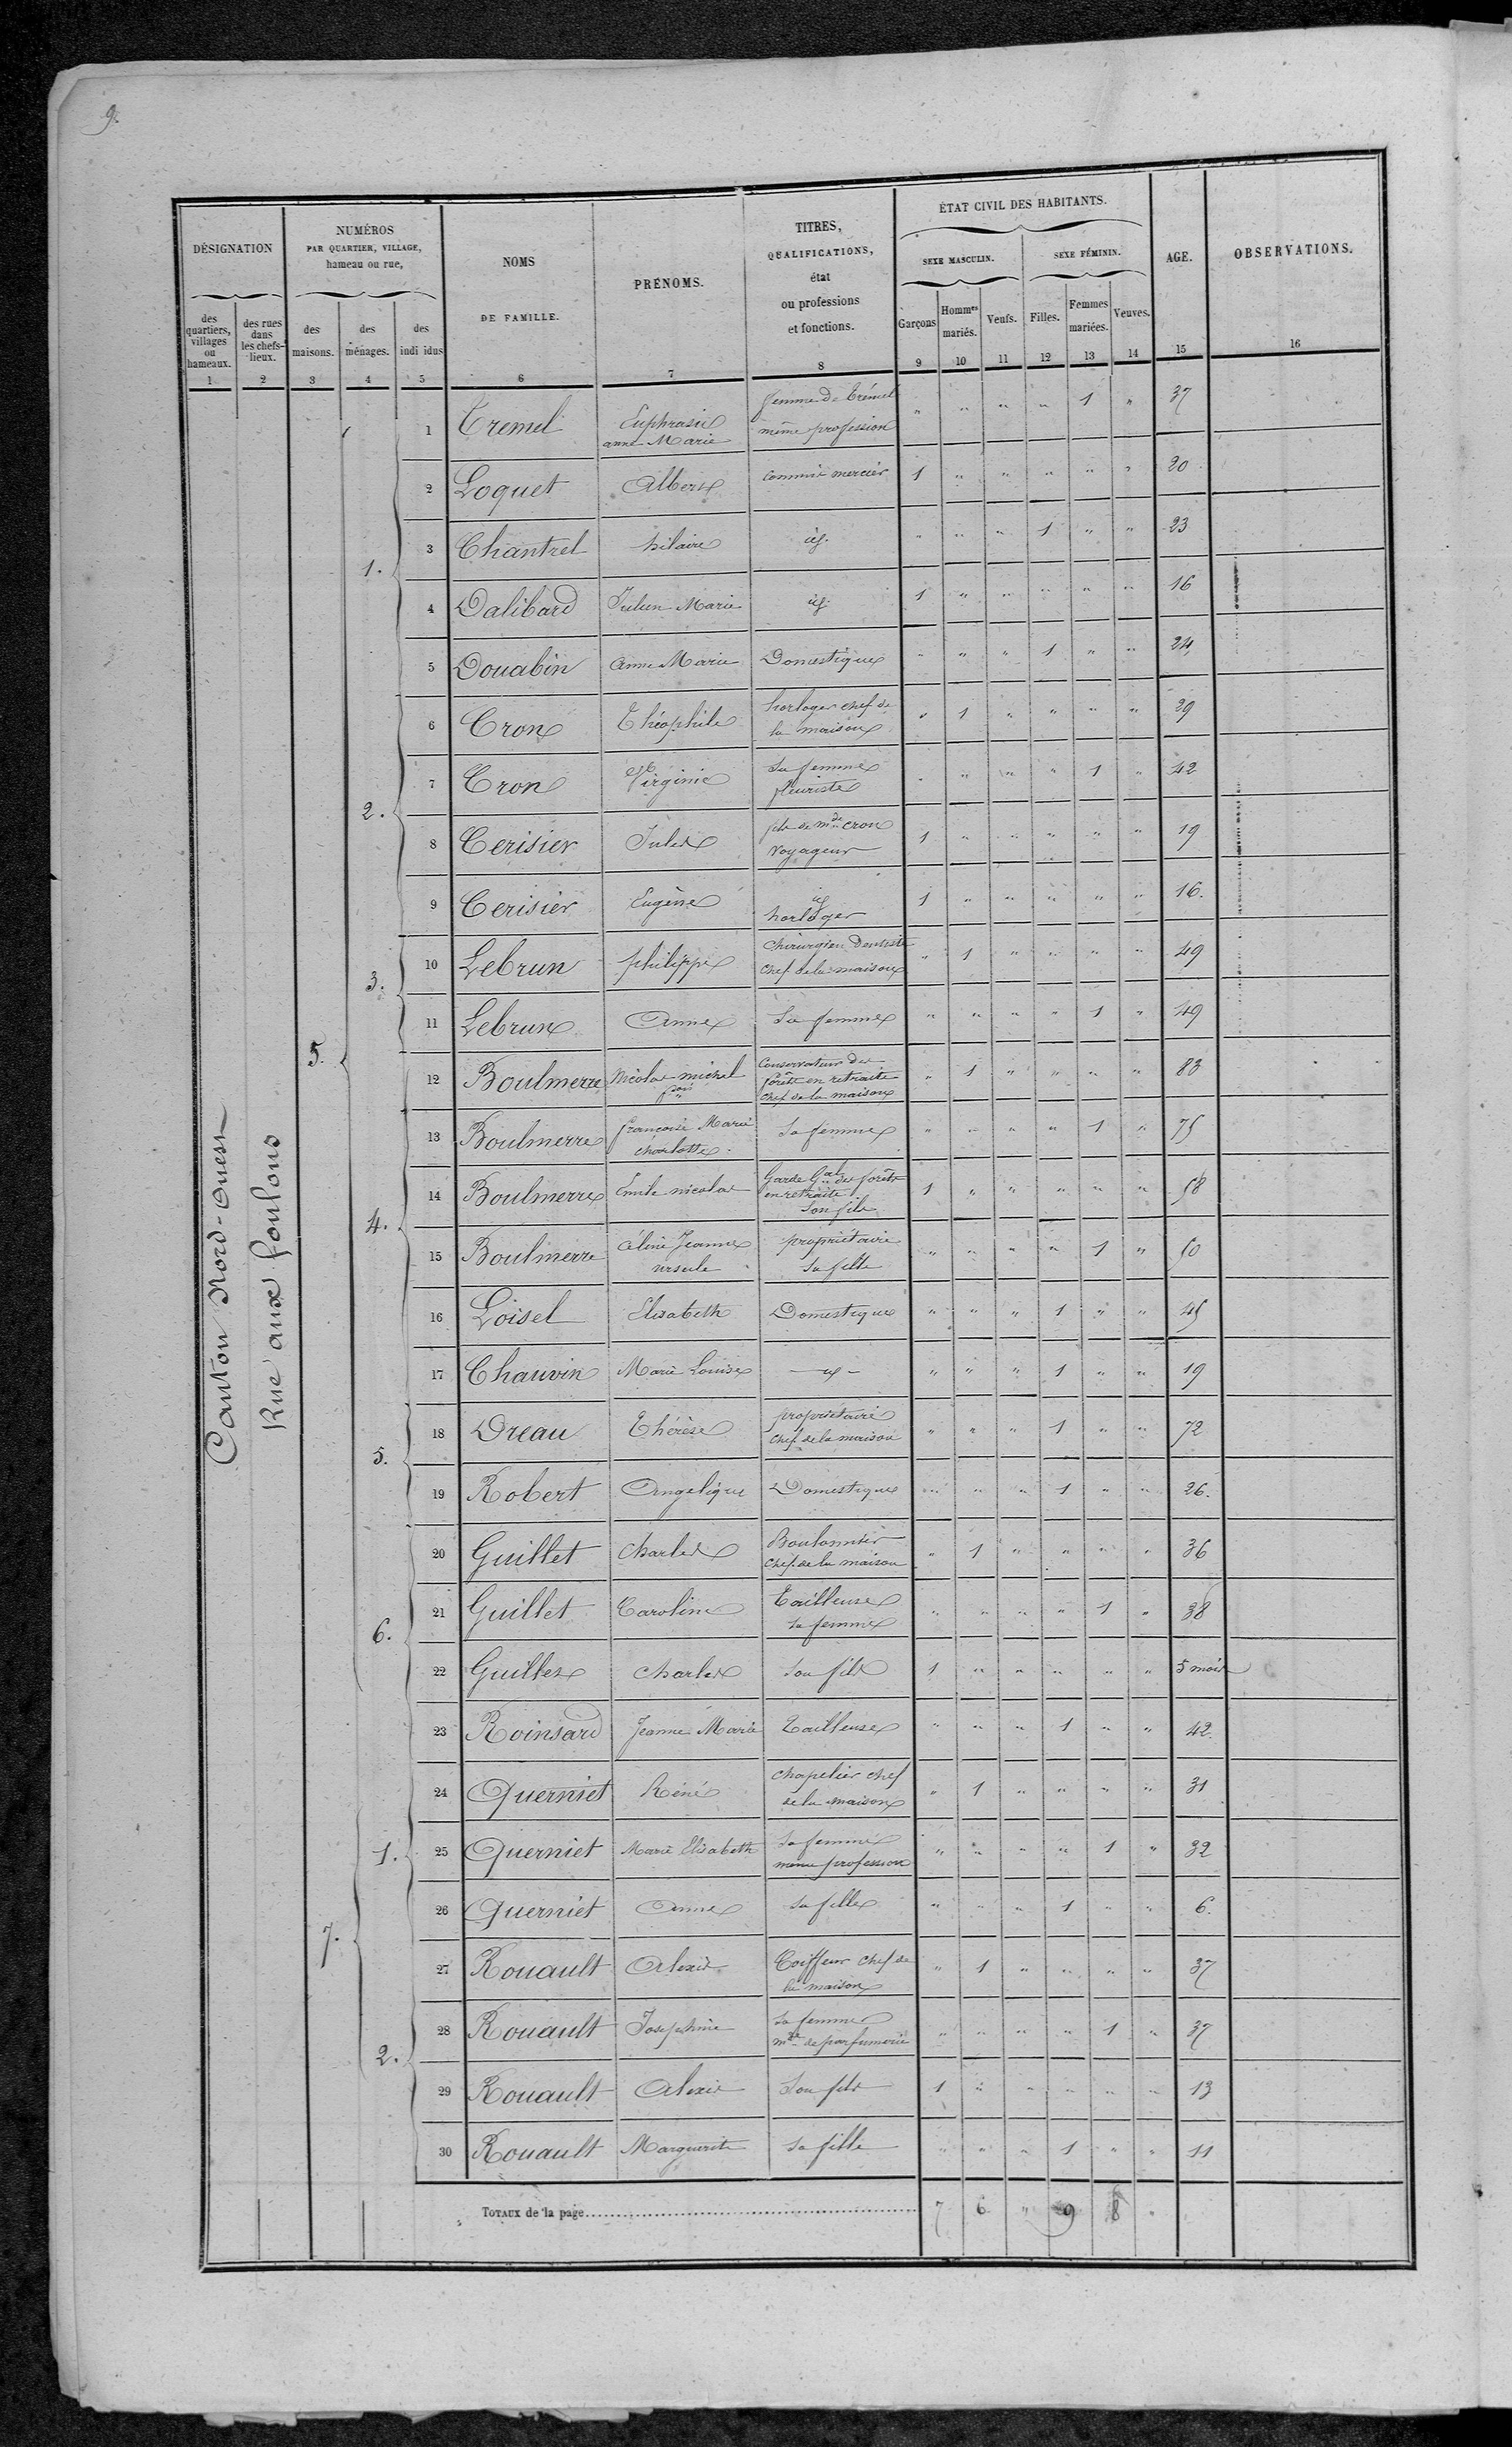 9.
DÉSIGNATION
NUMÉROS
PAR QUARTIER, VILLAGE,
hameau ou rue,
NOMS
DE FAMILLE.
PRÉNOMS.
TITRES,
QUALIFICATIONS,
état
ou professions
et fonctions.
ÉTAT CIVIL DES HABITANTS.
SEXE MASCULIN.
SEXE FÉMININ.
AGE.
OBSERVATIONS.
des quartiers, villages ou hameaux.
des rues dans les chefs-lieux.
des maisons.
des ménages.
des indi idus
Garçons
Hommes mariés.
Veufs.
Filles.
Femmes mariées.
Veuves.
1 2 3 4 5 6 7 8 9 10 11 12 13 14 15 16
Canton Nord-Ouest
Rue aux foulons
5.
1.
1 Tremel Euphrasie anne Marie femme de Trémel même profession " " " " 1 " 37
2 Loquet Albert commis mercier 1 " " " " " 20
3 Chantrel hilaire id. " " " 1 " " 23
4 Dalibard Julien Marie id. 1 " " " " " 16
5 Douabin anne Marie Domestique " " " 1 " " 24
2.
6 Cron Théophile horloger chef de la maison " 1 " " " " 29
7 Cron Virginie Sa femme fleuriste " " " " 1 " 42
8 Cerisier Jules fils de mde cron voyageur 1 " " " " " 19
9 Cerisier Eugène id horloger 1 " " " " " 16.
3.
10 Lebrun philippe Chirurgien Dentiste chef de la maison " 1 " " " " 49
11 Lebrun Anne Sa femme " " " " 1 " 49
4.
12 Boulmerre Nicolas michel fçois Conservateur des forêts en retraite chef de la maison " 1 " " " " 83
13 Boulmerre françoise Marie charlotte Sa femme " " " " 1 " 75
14 Boulmerre Emile nicolas Garde Gal des forêts en retraite Son fils 1 " " " " " 58
15 Boulmerre Céline Jeanne ursule propriétaire Sa fille " " " " 1 " 50
16 Loisel Elisabeth Domestique " " " 1 " " 45
17 Chauvin Marie Louise - id - " " " 1 " " 19
5.
18 Dreau Thérèse propriétaire chef de la maison " " " 1 " " 72
19 Robert Angelique Domestique " " " 1 " " 26.
6.
20 Guillet Charles Boulonnier chef de la maison " 1 " " " " 36
21 Guillet Caroline Tailleuse sa femme " " " " 1 " 38
22 Guillet charles Son fils 1 " " " " " 5 mois
23 Roinsard Jeanne Marie Tailleuse " " " 1 " " 42.
7.
1.
24 Querniet Réné chapelier chef de la maison " 1 " " " " 31
25 Querniet Marie Elisabeth Sa femme même profession " " " " 1 " 32
26 Querniet Anne Sa fille " " " 1 " " 6.
2.
27 Rouault Alexis Coiffeur chef de la maison " 1 " " " " 37
28 Rouault Josephine Sa femme mde de parfumerie " " " " 1 " 37
29 Rouault Alexis Son fils 1 " " " " " 13
30 Rouault Marguerite Sa fille " " " 1 " " 11
TOTAUX de la page 7 6 " 9 8 "